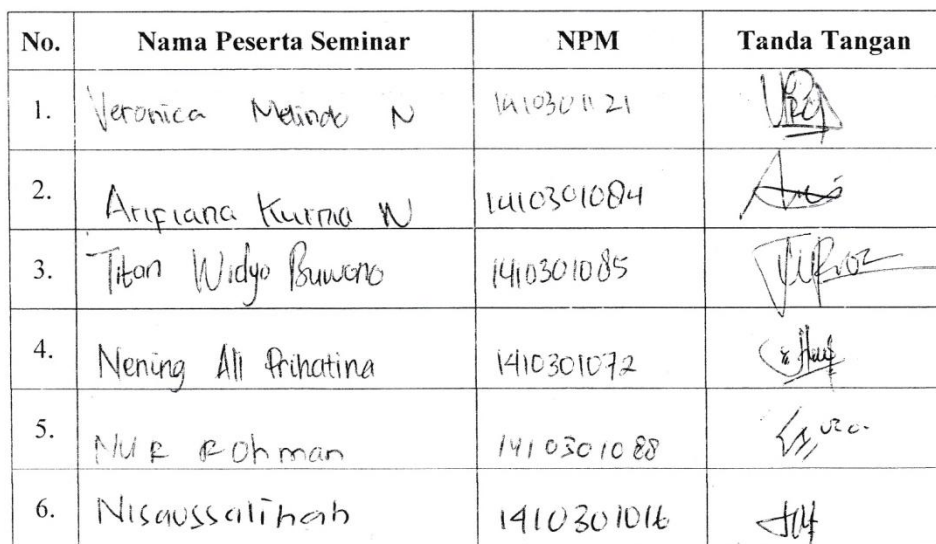 No. Nama Peserta Seminar NPM Tanda Tangan
1. Veronica Melinda N 1410301121
2. Arifiana Kurnia W 1410301084
3. Titan Widyo Buwono 1410301085
4. Nening Ali Prihatina 1410301072
5. NUR ROhman 1410301088
6. Nisaussalihah 1410301016